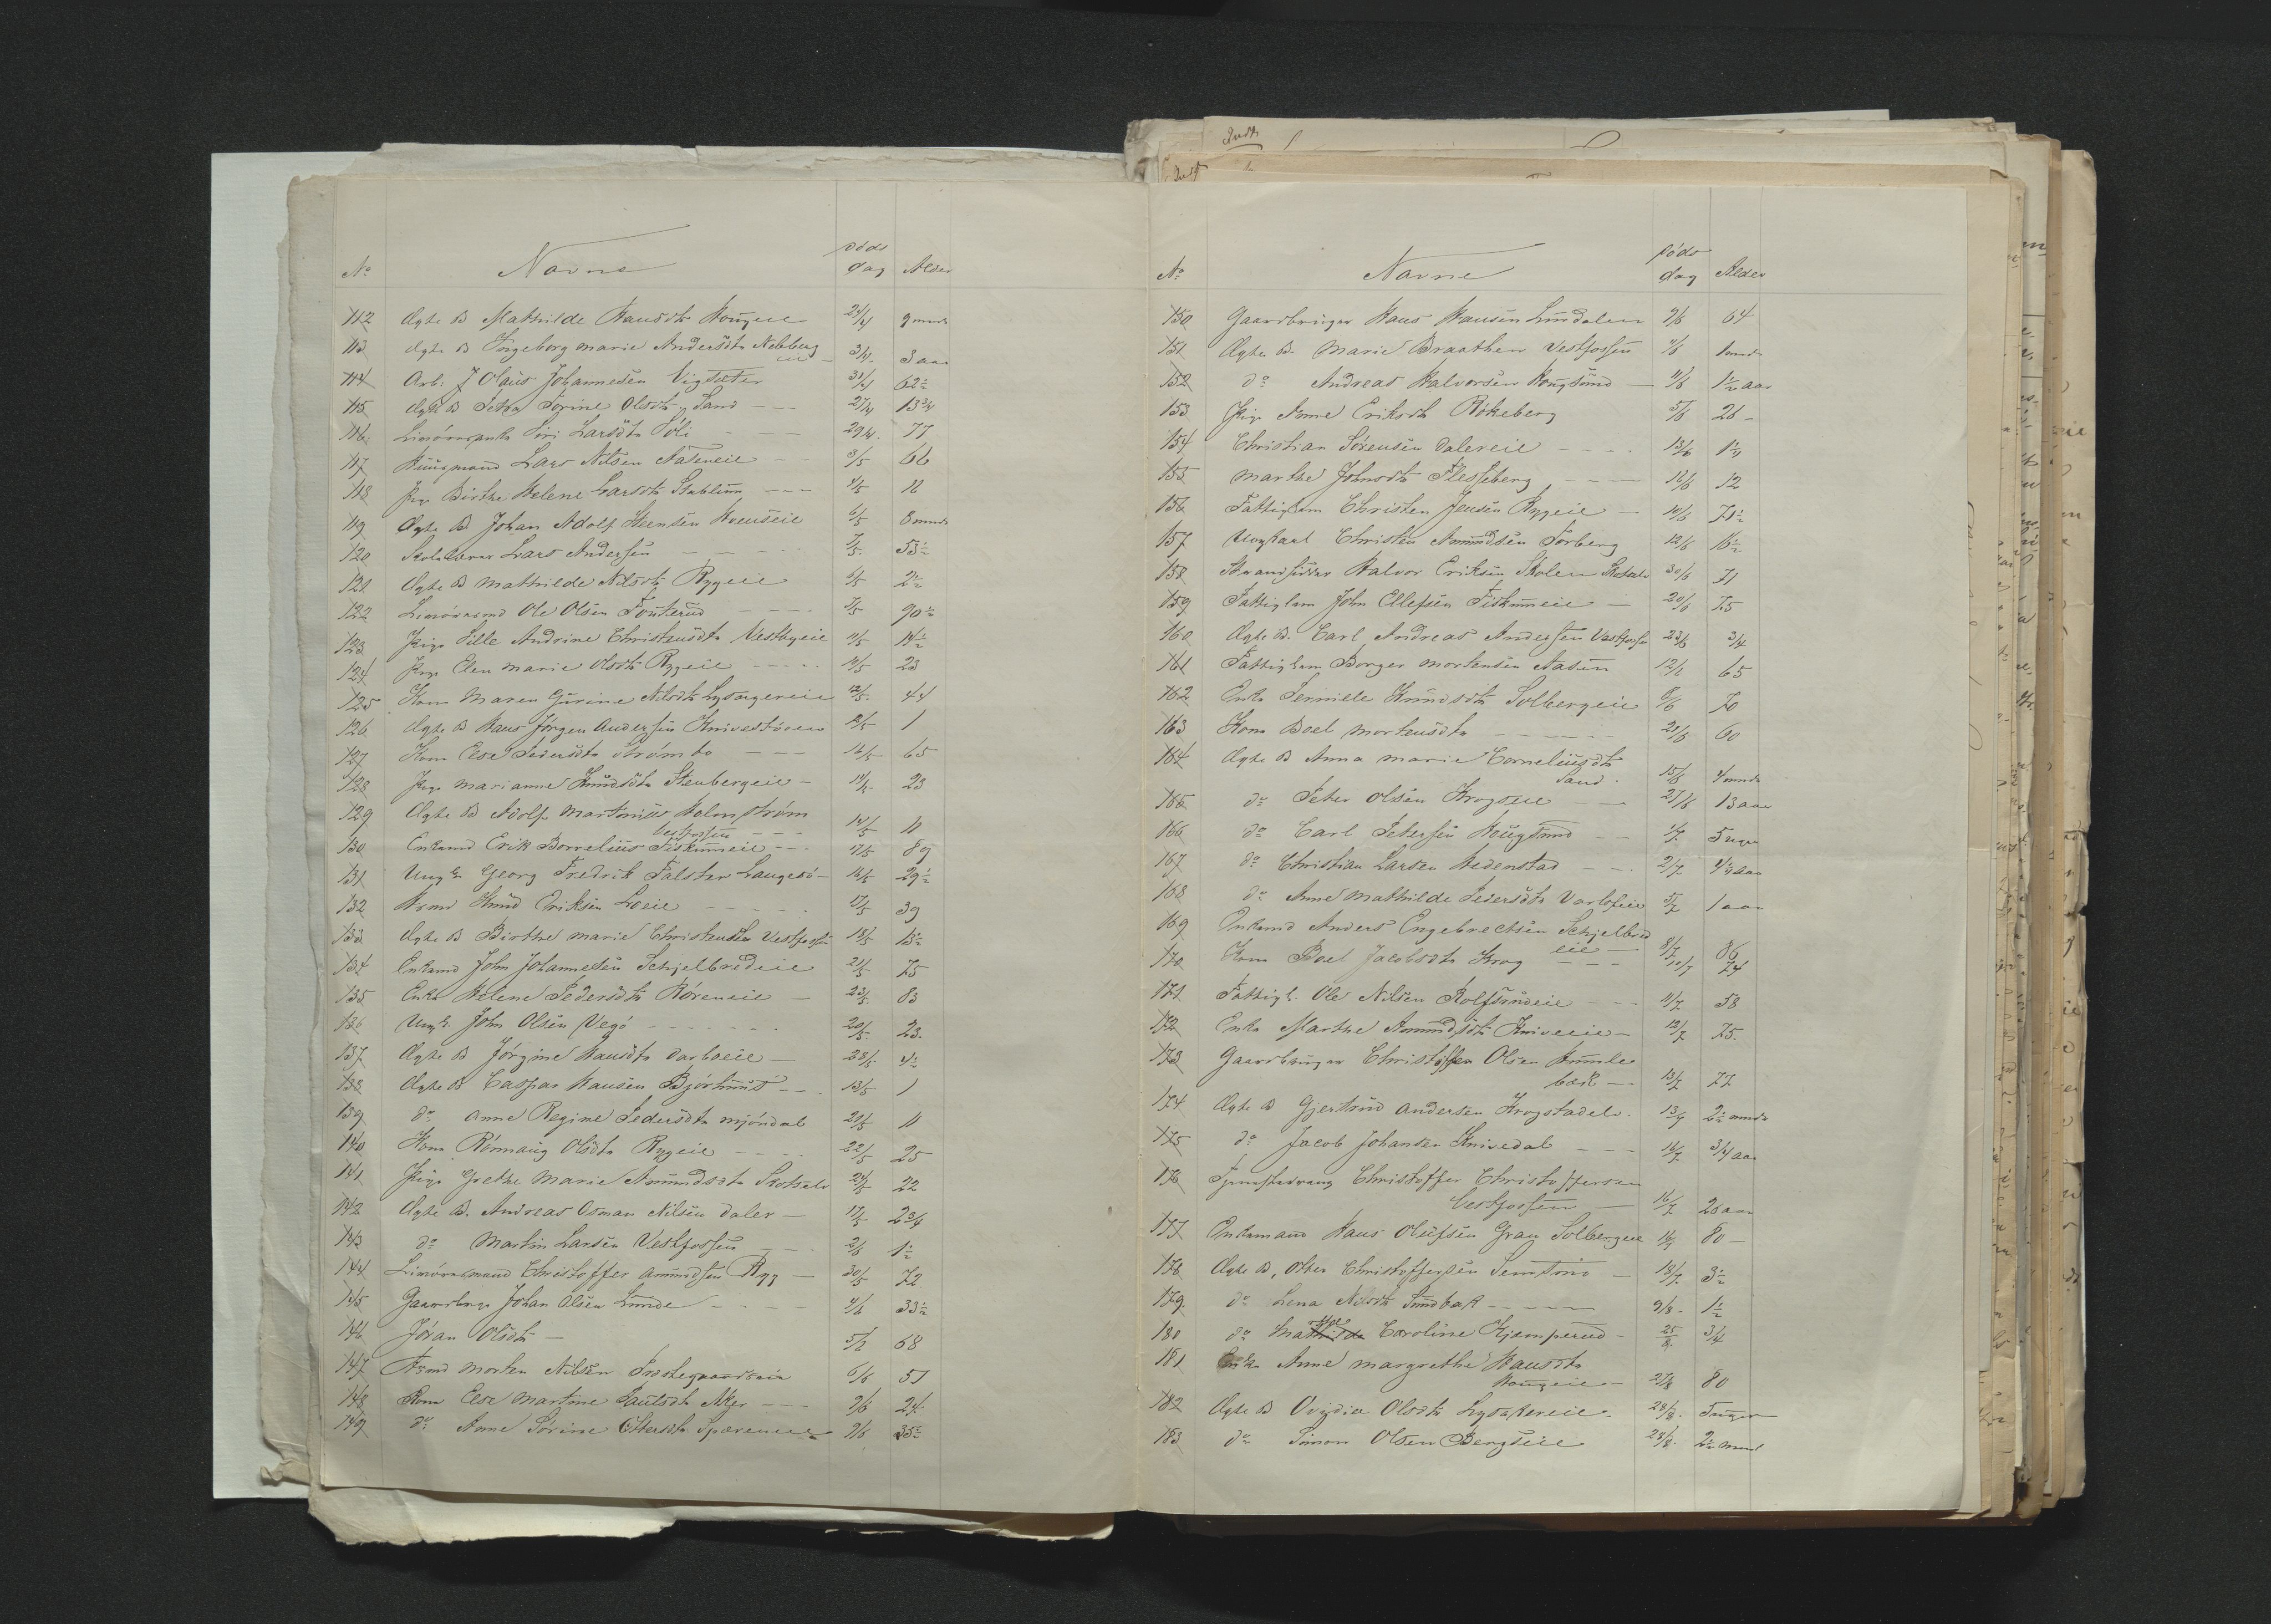 No Navne Døds dag Alder
112 Ægte B Mathilde Hansdtr Hougeie 24/4 9 mnd
113 Ægte B Ingeborg Marie Andersdtr Nebberg
eie 3/4 3 aar
114 Arb: J Olaus Johannesen Vigsæter 31/4 62½
115 Ægte B Petra Torine Olsdtr Sand 27/4 13¾
116 Livøreenke Siri Larsdtr Foli 29/4 77
117 Huusmand Lars Nilsen Aaseneie 3/5 66
118 Pige Birthe Helene Larsdtr Stablum 4/5 12
119 Ægte B Johan Adolf Steensen Hvenseie 6/5 8 mnd
120 Skolelærer Lars Andersen 7/5 53½
121 Ægte B Mathilde Nilsdtr Rygeie 6/5 2½
122 Livøremand Ole Olsen Fouterud 7/5 90½
123 Pige Lille Andrine Christensdtr Vestbyeie 11/5 14½
124 Pige Elen Marie Olsdtr Rygeie 10/5 23
125 Kone Maren Gurine Nilsdtr Lysagereie 12/5 44
126 Ægte B Hans Jørgen Andersen Knivestøen 12/5 1
127 Kone Else Pedersdtr Strømbo 16/5 65
128 Pige Marianne Knudsdtr Stenbergeie 14/5 23
129 Ægte B Adolf Martinius Holmstrøm
Vestfossen 14/5 11
130 Enkemd Erik Borrelius Fiskumeie 17/5 89
131 Ung K Georg Fredrik Falster Langesø 16/5 29½
132 Hsmd Knud Eriksen Loeie 17/5 39
133 Ægte B Birthe Marie Christensdtr Vestfossen 18/5 13½
134 Enkemd John Johannesen Schjelbredeie 21/5 75
135 Enke Helene Pedersdtr Røreneie 23/5 83
136 Ungk. John Olsen Vego 20/5 23
137 Ægte B Jørgine Hansdtr Darboeie 28/5 4½
138 Ægte B Caspar Hansen Bjørhuus 13/5 1
139 do Anne Regine Pedersdtr Mjøndal 20/5 11
140 Kone Rønnaug Olsdtr Rygeie 22/5 25
141 Pige Grethe Marie Amundsdtr Skotselv 24/5 22
142 Ægte B. Andreas Osman Nilsen Daler 17/5 2¾
143 do Martin Larsen Vestfossen 2/6 1½
144 Livøremand Christoffer Amundsen Ryg 30/5 72
145 Gaardbrug Johan Olsen Lunde 4/6 33½
146 Jøran Olsdtr 5/6 68
147 Hsmd Morten Nilsen Prestegaardseie 6/6 51
148 Kone Else Martine Paulsdtr Aker 9/6 24
149 do Anne Sørine Ottersdtr Spæreneie 9/6 35½
No Navne Døds dag Alder
150 Gaardbruger Hans Hansen Lundalen 9/6 64
151 Ægte B. Marie Braathen Vestfossen 11/6 1 mnd
152 do Andreas Halvorsen Hougsund 11/6 1½ aar
153 Pige Anne Eriksdtr Røkeberg 5/6 26
154 Christian Sørensen Dalereie 13/6 1¼
155 Marthe Johnsdtr Flesseberg 16/6 12
156 Fattiglem Christen Jensen Rygeie 10/6 71½
157 Ungkarl Christen Amundsen Torberg 12/6 16½
158 Strandsidder Halvor Eriksen Skolen Skotselv 30/6 71
159 Fattiglem John Ellefsen Fiskumeie 20/6 75
160 Ægte B. Carl Andreas Andersen Vestfossen 23/6 3/4
161 Fattiglem Borger Mortensen Aasen 12/6 65
162 Enke Pernille Knudsdtr Solbergeie 8/6 70
163 Kone Boel Mortensdtr 21/6 60
164 Ægte B Anna Marie Corneliusdtr
Sand. 15/6 4 mnd
165 do Peter Olsen Krogseie 27/6 13 aar
166 do Carl Petersen Hougsund 1/7 5 uger
167 do Christian Larsen Hedenstad 2/7 4½ aar
168 do Anne Mathilde Pedersdtr Varloseie 5/7 1 aar
169 Enkemd Anders Engebretsen Schjelbred
eie 8/7 86
170 Kone Boel Jacobsdtr Krog 10/7 74
171 Fattigl. Ole Nilsen Rolfsrudeie 11/7 58
172 Enke Marthe Amundsdtr Kniveeie 12/7 75
173 Gaardbruger Christoffer Olsen Humle
bæk 13/7 77
174 Ægte B Gjertrud Andersen Krogstadelv. 13/7 2½ mnd
175 do Jacob Johansen Knivedal 16/7 3/4 aar
176 Christoffer Christoffersen
Vestfossen 16/7 28 aar
177 Enkemand Hans Olufsen Gran Solbergeie 16/7 80
178 Ægte B, Otter Christoffersen Semsrud 18/7 3½
179 do Lena Nilsdtr Sundbæk 9/8 1½
180 do Mathilde Caroline Kjemperud 25/8 3/4
181 Enke Anne Margrethe Hansdtr
Hougeie 27/8 80
182 Ægte B Ovidia Olsdtr Lysakereie 28/8 5 uger
183 do Simon Olsen Bergseie 28/8 2½ mnd